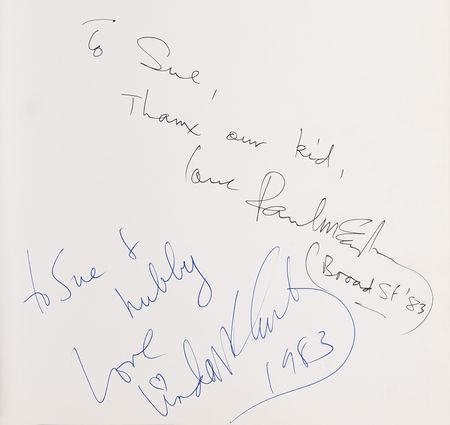 To Sue,
Thanx our kid,
love Paul McCartney
(Broad St '83
to Sue &
hubby
Love
Linda McCartney
1983